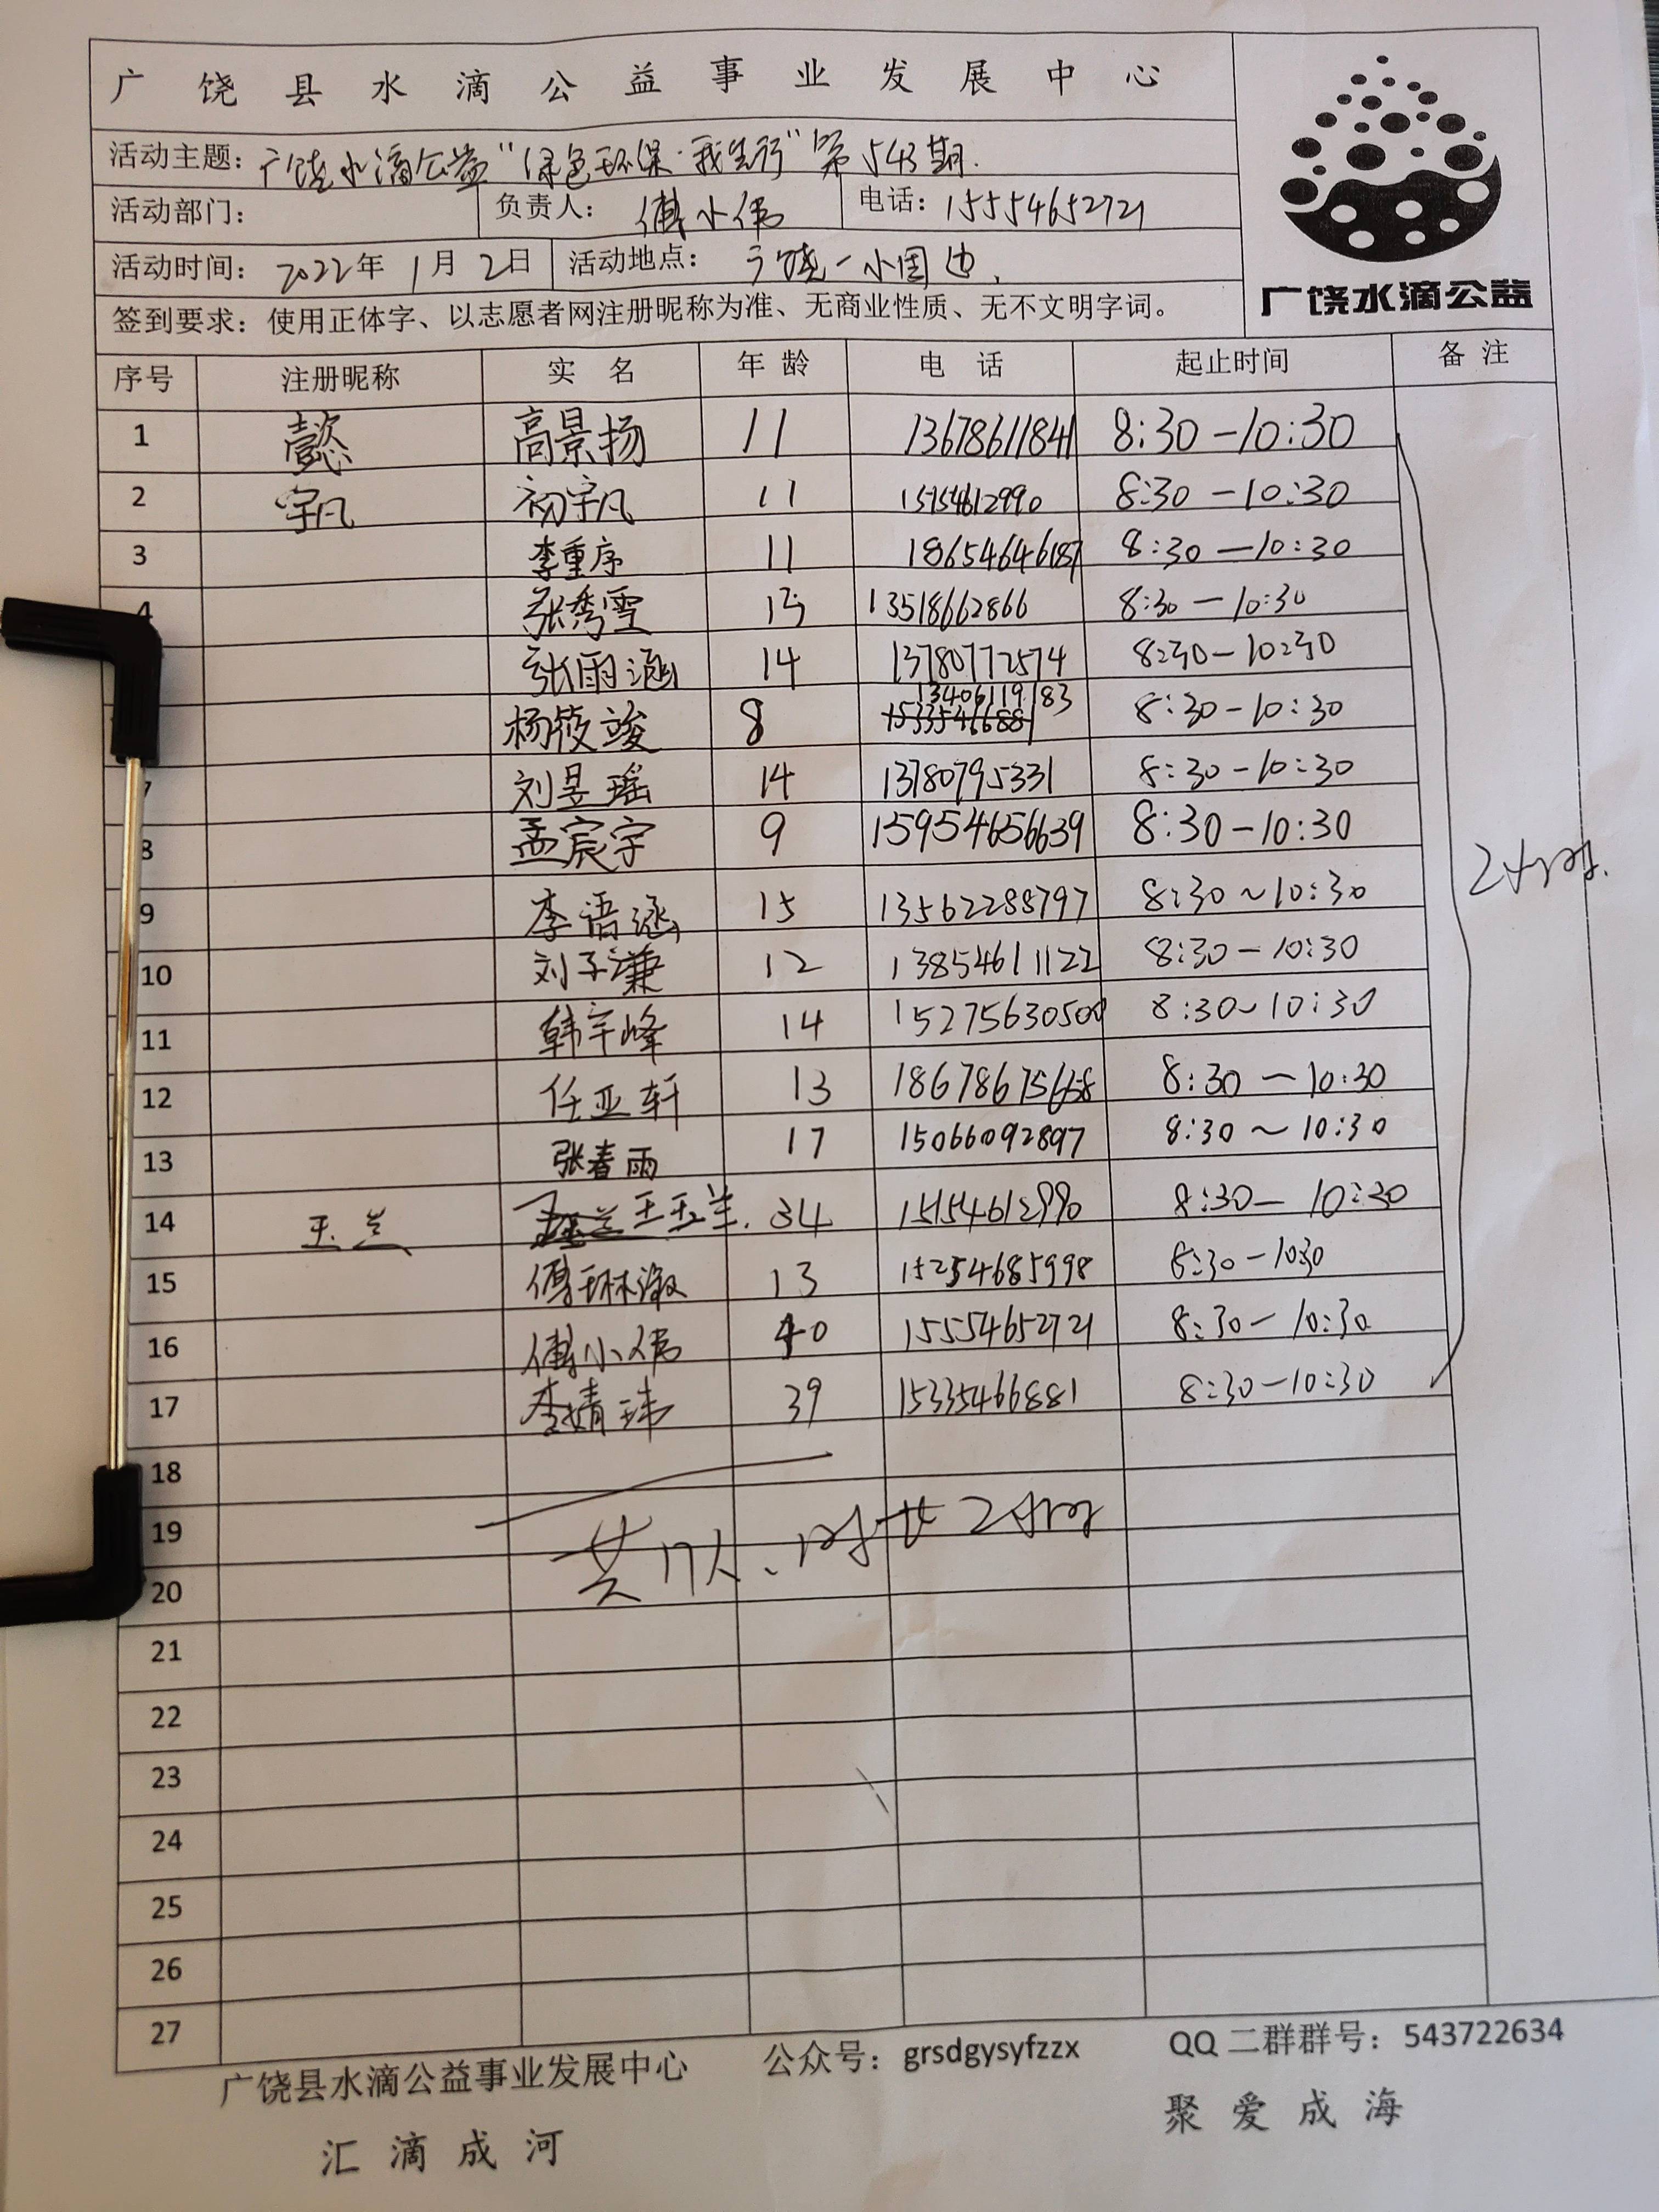 广饶县水滴公益事业发展中心
活动主题：广饶水滴公益“绿色环保·我先行”第543期.
活动部门： 负责人：傅小伟 电话：15554652721
活动时间：2022年1月2日 活动地点：广饶一小周边.
签到要求：使用正体字、以志愿者网注册昵称为准、无商业性质、无不文明字词。
广饶水滴公益
序号 注册昵称 实 名 年 龄 电 话 起止时间 备 注
1 懿 高景扬 11 13678611841 8:30-10:30
2 宇凡 初宇凡 11 15154612990 8:30-10:30
3 李重序 11 18654646187 8:30-10:30
4 张秀雪 13518662866 8:30-10:30
张雨涵 14 13780772574 8:30-10:30
13406119183
杨筱竣 8 15335466881 8:30-10:30
7 刘昱瑶 14 13780795331 8:30-10:30
8 孟宸宇 9 15954656639 8:30-10:30
9 李语涵 15 13562288797 8:30~10:30
10 刘子谦 12 13854611122 8:30-10:30
11 韩宇峰 14 15275630500 8:30~10:30
12 任亚轩 13 18678675658 8:30-10:30
13 张春雨 17 15066092897 8:30~10:30
14 玉兰 王玉兰. 34 15154612990 8:30-10:30
15 傅琳淑 13 15254685998 8:30-10:30
16 傅小伟 40 15554652721 8:30-10:30
17 李婧玮 39 15335466881 8:30-10:30
2小时.
18
19
共17人、时长2小时
20
21
22
23
24
25
26
27
广饶县水滴公益事业发展中心 公众号：grsdgysyfzzx QQ二群群号：543722634
汇滴成河 聚爱成海